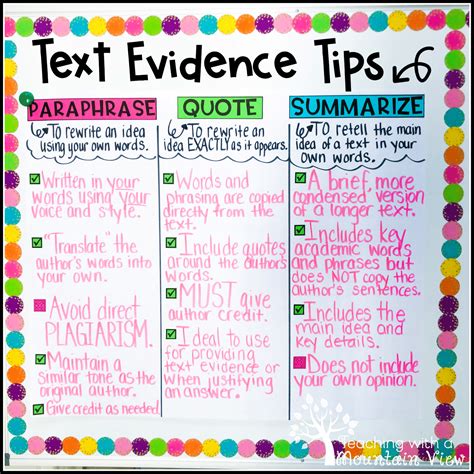 Text Evidence Tips
PARAPHRASE
TO rewrite an idea
using your own words.
Written in your
words using your
voice and style.
"Translate" the
author's words into
your own.
Avoid direct
PLAGIARISM.
Maintain a
similar tone as the
original author.
Give credit as needed.
QUOTE
TO rewrite an
idea EXACTLY as it appears.
Words and
phrasing are copied
directly from the
text.
Include quotes
around the author's
words.
MUST give
author credit.
Ideal to use
for providing
text evidence or
when justifying
an answer.
SUMMARIZE
TO retell the main
idea of a text in your
own words.
A brief, more
condensed version
of a longer text.
Includes key
academic words
and phrases but
does NOT copy the
author's sentences.
Includes the
main idea and
key details.
Does not include
your own opinion.
teaching with a
Mountain View